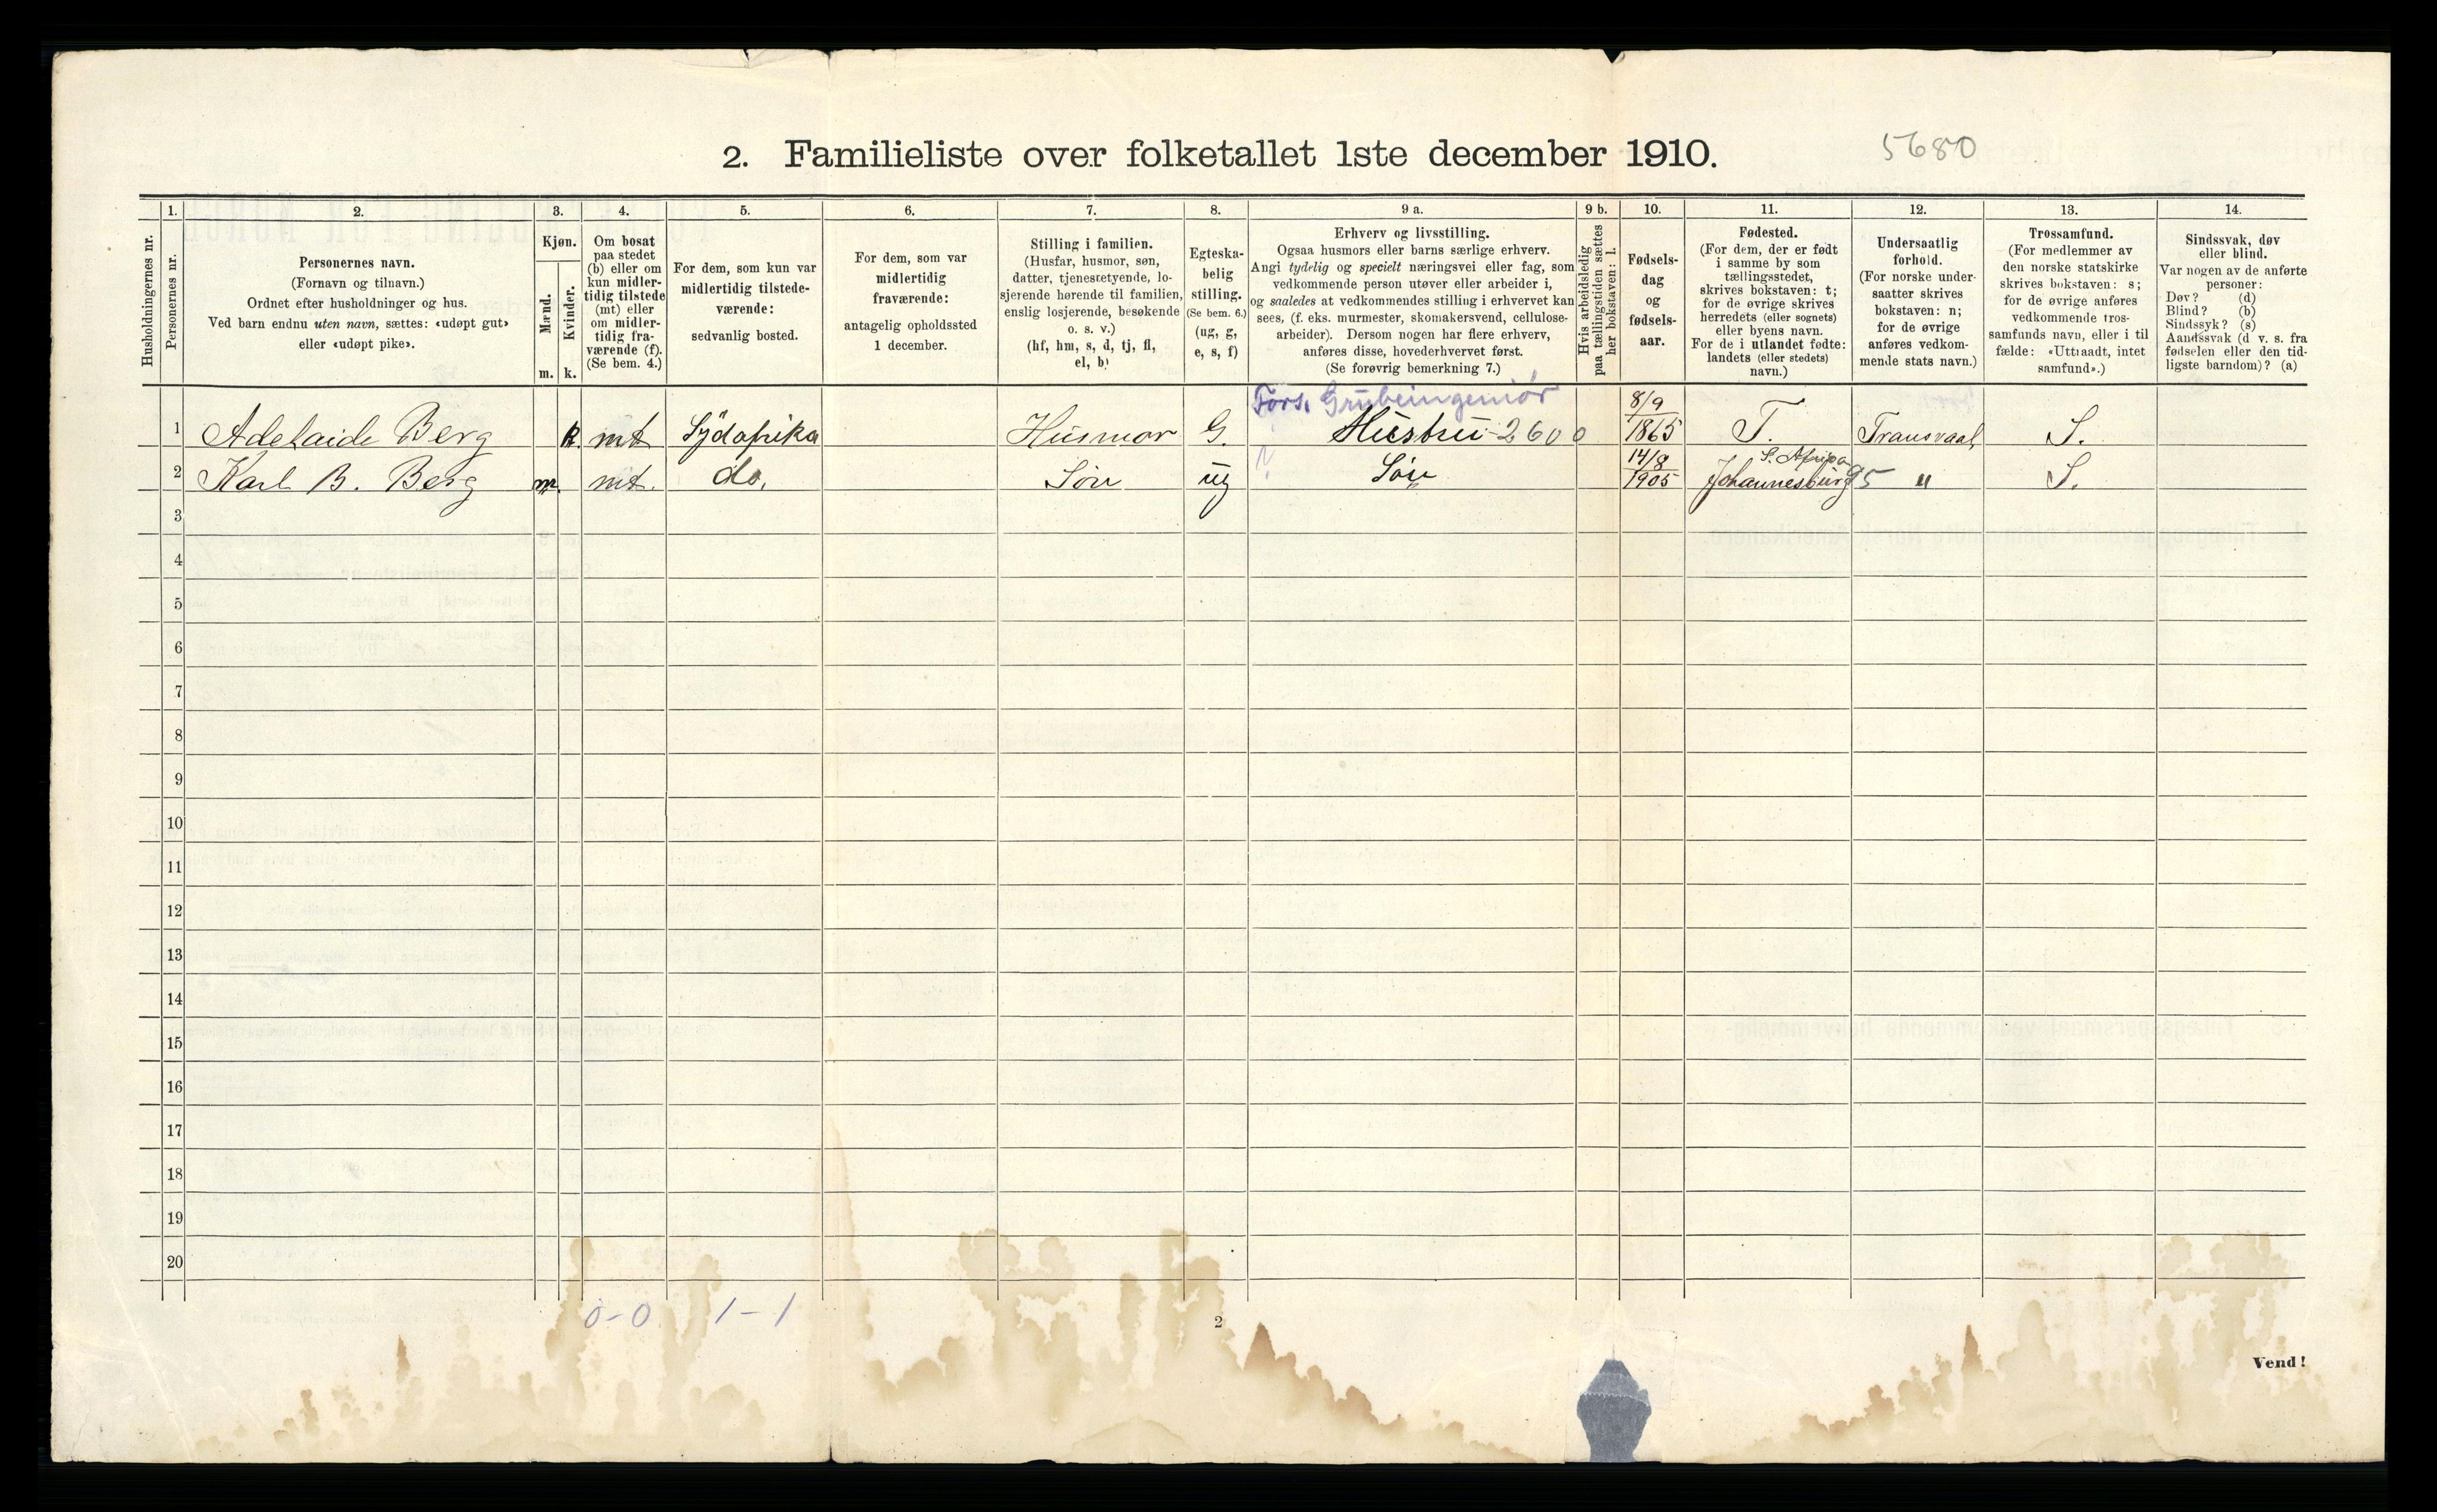 2. Familieliste over folketallet 1ste december 1910.
5680
Husholdningernes nr.
1.
Personernes nr.
2.
Personernes navn.
(Fornavn og tilnavn.)
Ordnet efter husholdninger og hus.
Ved barn endnu uten navn, sættes: «udøpt gut»
eller «udøpt pike».
3.
Kjøn.
Mænd.
m.
Kvinder.
k.
4.
Om bosat
paa stedet
(b) eller om
kun midler-
tidig tilstede
(mt) eller
om midler-
tidig fra-
værende (f).
(Se bem. 4.)
5.
For dem, som kun var
midlertidig tilstede-
værende:
sedvanlig bosted.
6.
For dem, som var
midlertidig
fraværende:
antagelig opholdssted
1 december.
7.
Stilling i familien.
(Husfar, husmor, søn,
datter, tjenestetyende, lo-
sjerende hørende til familien,
enslig losjerende, besøkende
o. s. v.)
(hf, hm, s, d, tj, fl,
el, b)
8.
Egteska-
belig
stilling.
(Se bem. 6.)
(ug, g,
e, s, f)
9 a.
Erhverv og livsstilling.
Ogsaa husmors eller barns særlige erhverv.
Angi tydelig og specielt næringsvei eller fag, som
vedkommende person utøver eller arbeider i,
og saaledes at vedkommendes stilling i erhvervet kan
sees, (f. eks. murmester, skomakersvend, cellulose-
arbeider). Dersom nogen har flere erhverv,
anføres disse, hovederhvervet først.
(Se forøvrig bemerkning 7.)
9 b.
Hvis arbeidsledig
paa tællingstiden sættes
her bokstaven: l.
10.
Fødsels-
dag
og
fødsels-
aar.
11.
Fødested.
(For dem, der er født
i samme by som
tællingsstedet,
skrives bokstaven: t;
for de øvrige skrives
herredets (eller sognets)
eller byens navn.
For de i utlandet fødte:
landets (eller stedets)
navn.)
12.
Undersaatlig
forhold.
(For norske under-
saatter skrives
bokstaven: n;
for de øvrige
anføres vedkom-
mende stats navn.)
13.
Trossamfund.
(For medlemmer av
den norske statskirke
skrives bokstaven: s;
for de øvrige anføres
vedkommende tros-
samfunds navn, eller i til
fælde: «Uttraadt, intet
samfund».)
14.
Sindssvak, døv
eller blind.
Var nogen av de anførte
personer:
Døv? (d)
Blind? (b)
Sindssyk? (s)
Aandssvak (d v. s. fra
fødselen eller den tid-
ligste barndom)? (a)
Fors. Grubeingeniør
1 Adelaide Berg k. mt Sydafrika Husmor G. Hustru 2600 8/9 1865 T. Transvaal, S.
2 Karl B. Berg m. mt. do. Søn ug ? Søn 14/8 1905 S. Afrika Johannesburg 95 " S.
3
4
5
6
7
8
9
10
11
12
13
14
15
16
17
18
19
20
0-0 1-1
2
Vend!